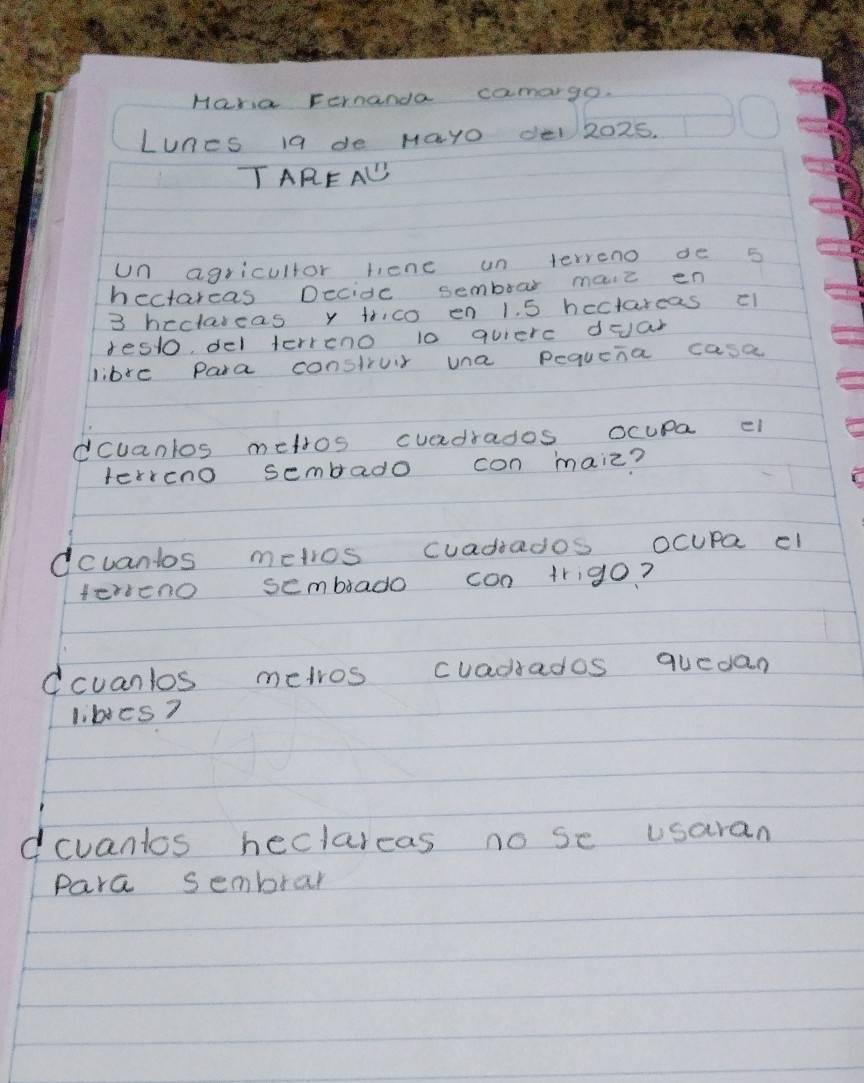 Maria Fernanda camargo.
Lunes 19 de Mayo del 2025.
TAREA
un agricultor tiene un terreno de 5
hectareas Decide sembrar maiz en
3 hectareas y trico en 1.5 hectareas el
resto. del terreno lo quiere dejar
libre para construir una pequeña casa
¿cuantos metros cuadrados ocupa el
terreno sembrado con maiz?
¿cuantos metros cuadrados ocupa el
terreno sembrado con trigo?
¿cuantos metros cuadrados quedan
libres?
¿cuantos hectareas no se usaran
para sembrar